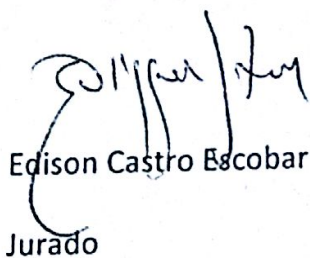 Edison Castro Escobar
Jurado